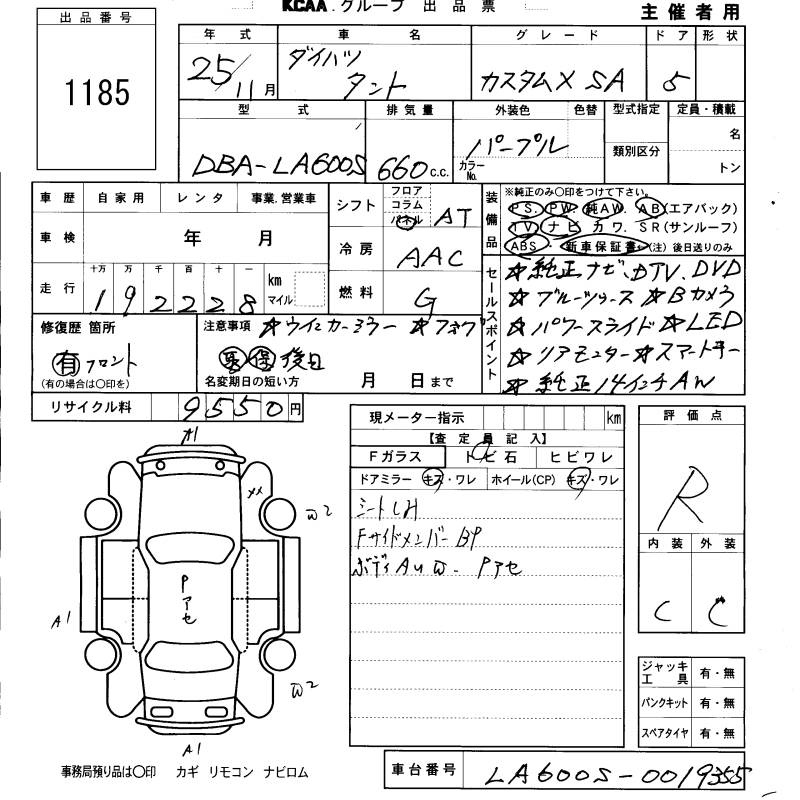 KCAA.グループ 出品票
主催者用
出品番号
1185
年式 車名 グレード ドア 形状
25/11月 ダイハツ タント カスタムX SA 5
型式 排気量 外装色 色替 型式指定 定員・積載
DBA-LA600S 660c.c. パープル カラーNo. 類別区分 名 トン
車歴 自家用 レンタ 事業.営業車
車検 年 月
走行 十万 万 千 百 十 一 km マイル
192228
シフト フロア コラム パネル AT
冷房 AAC
燃料 G
装備品 ※純正のみ〇印をつけて下さい。
PS. PW. 純AW. AB(エアバック)
TV. ナビ. カワ. SR(サンルーフ)
ABS. 新車保証書(注)後日送りのみ
セールスポイント
☆純正ナビ、DTV、DVD
☆ブルーツゥース ☆Bカメラ
☆パワースライド ☆LED
☆リアモニター ☆スマートキー
☆純正14インチAW
修復歴 箇所
有 フロント
(有の場合は〇印を)
注意事項 ☆ウインカーミラー ☆フォグ
取 保 後日
名変期日の短い方 月 日まで
リサイクル料 9550円
現メーター指示 km
【査定員記入】
Fガラス トビ石 ヒビワレ
ドアミラー キズ・ワレ ホイール(CP) キズ・ワレ
シートLH
FサイドメンバーBP
ボディAUW. Pアセ
評価点
R
内装 外装
C C
A1
XX
W2
Pアセ
A1
W2
A1
ジャッキ工具 有・無
パンクキット 有・無
スペアタイヤ 有・無
事務局預り品は〇印 カギ リモコン ナビロム
車台番号 LA600S-0019355